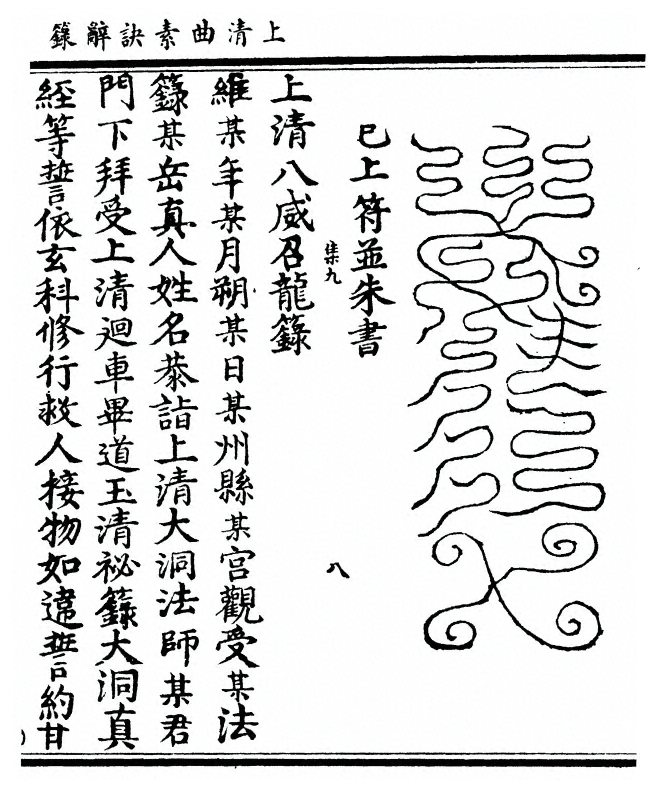 上清曲素訣辭籙
巳上符並朱書
集九
八
上清八威召龍籙
維某年某月朔某日某州縣某宮觀受某法
籙某岳真人姓名恭詣上清大洞法師某君
門下拜受上清迴車畢道玉清祕籙大洞真
經等誓依玄科修行救人接物如違誓約甘